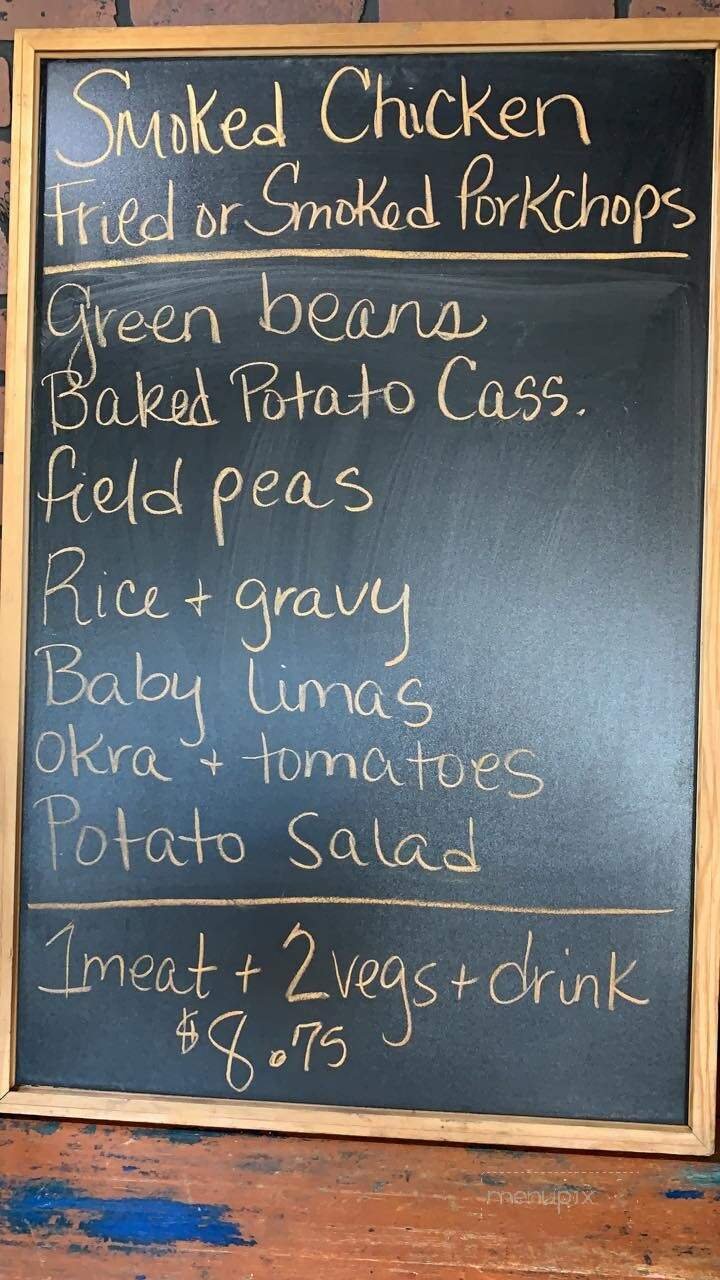 Smoked Chicken
Fried or Smoked Porkchops
green beans
Baked Potato Cass.
field peas
Rice + gravy
Baby limas
Okra + tomatoes
Potato Salad
1 meat + 2 vegs + drink
$8.75
menupix